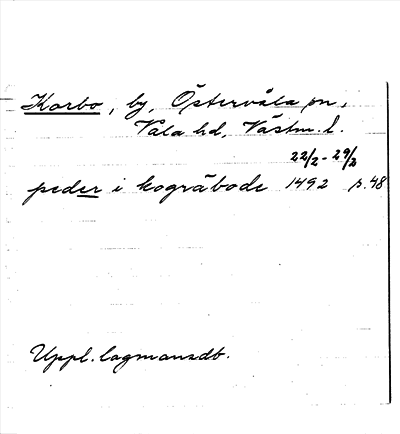 Korbo, by, Östervåla sn,
Våla hd, Västm. l.
22/2 - 29/2
peder i kogräbode 1492 s. 48
Uppl. lagmansdb.